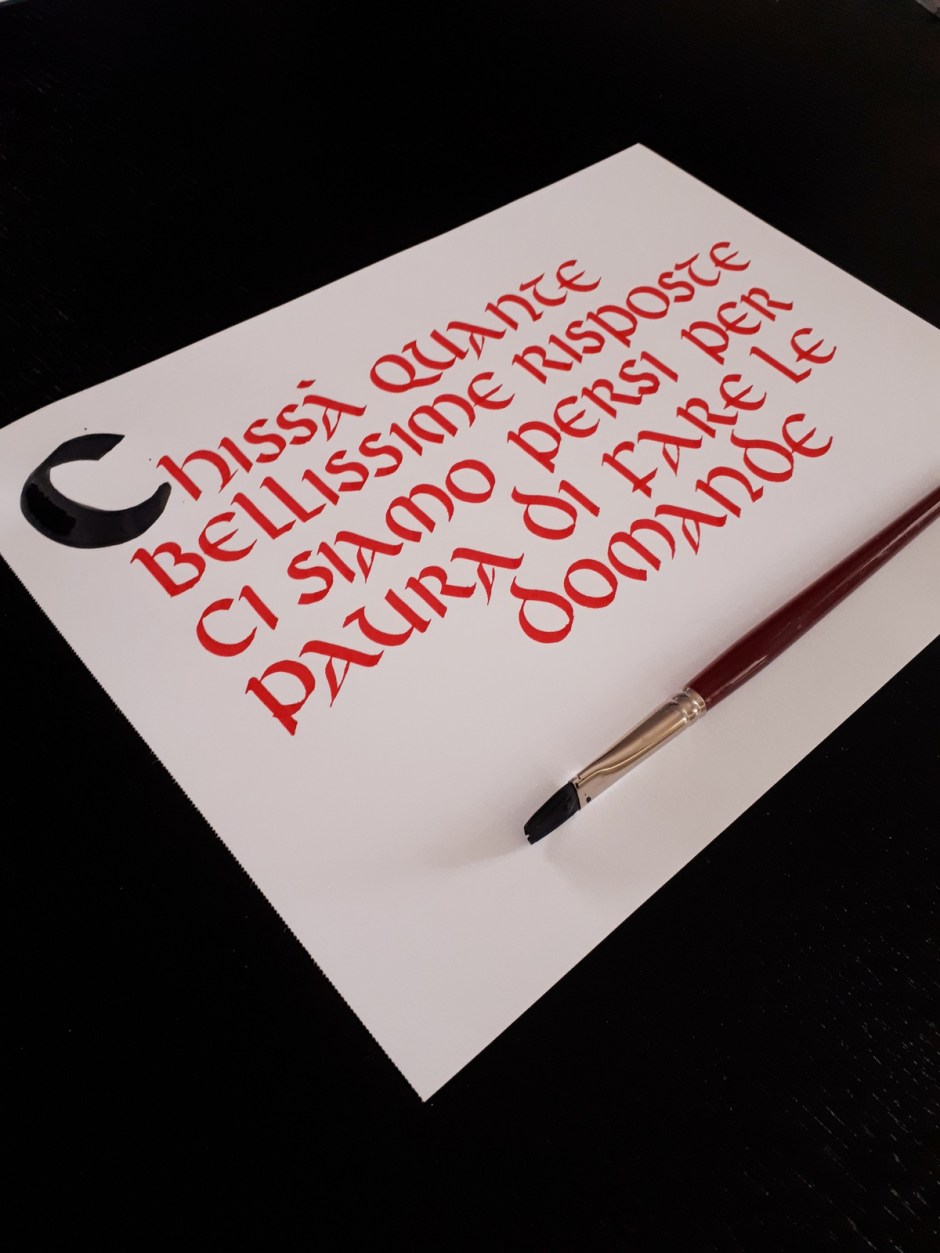 Chissà quante
bellissime risposte
ci siamo persi per
paura di fare le
domande